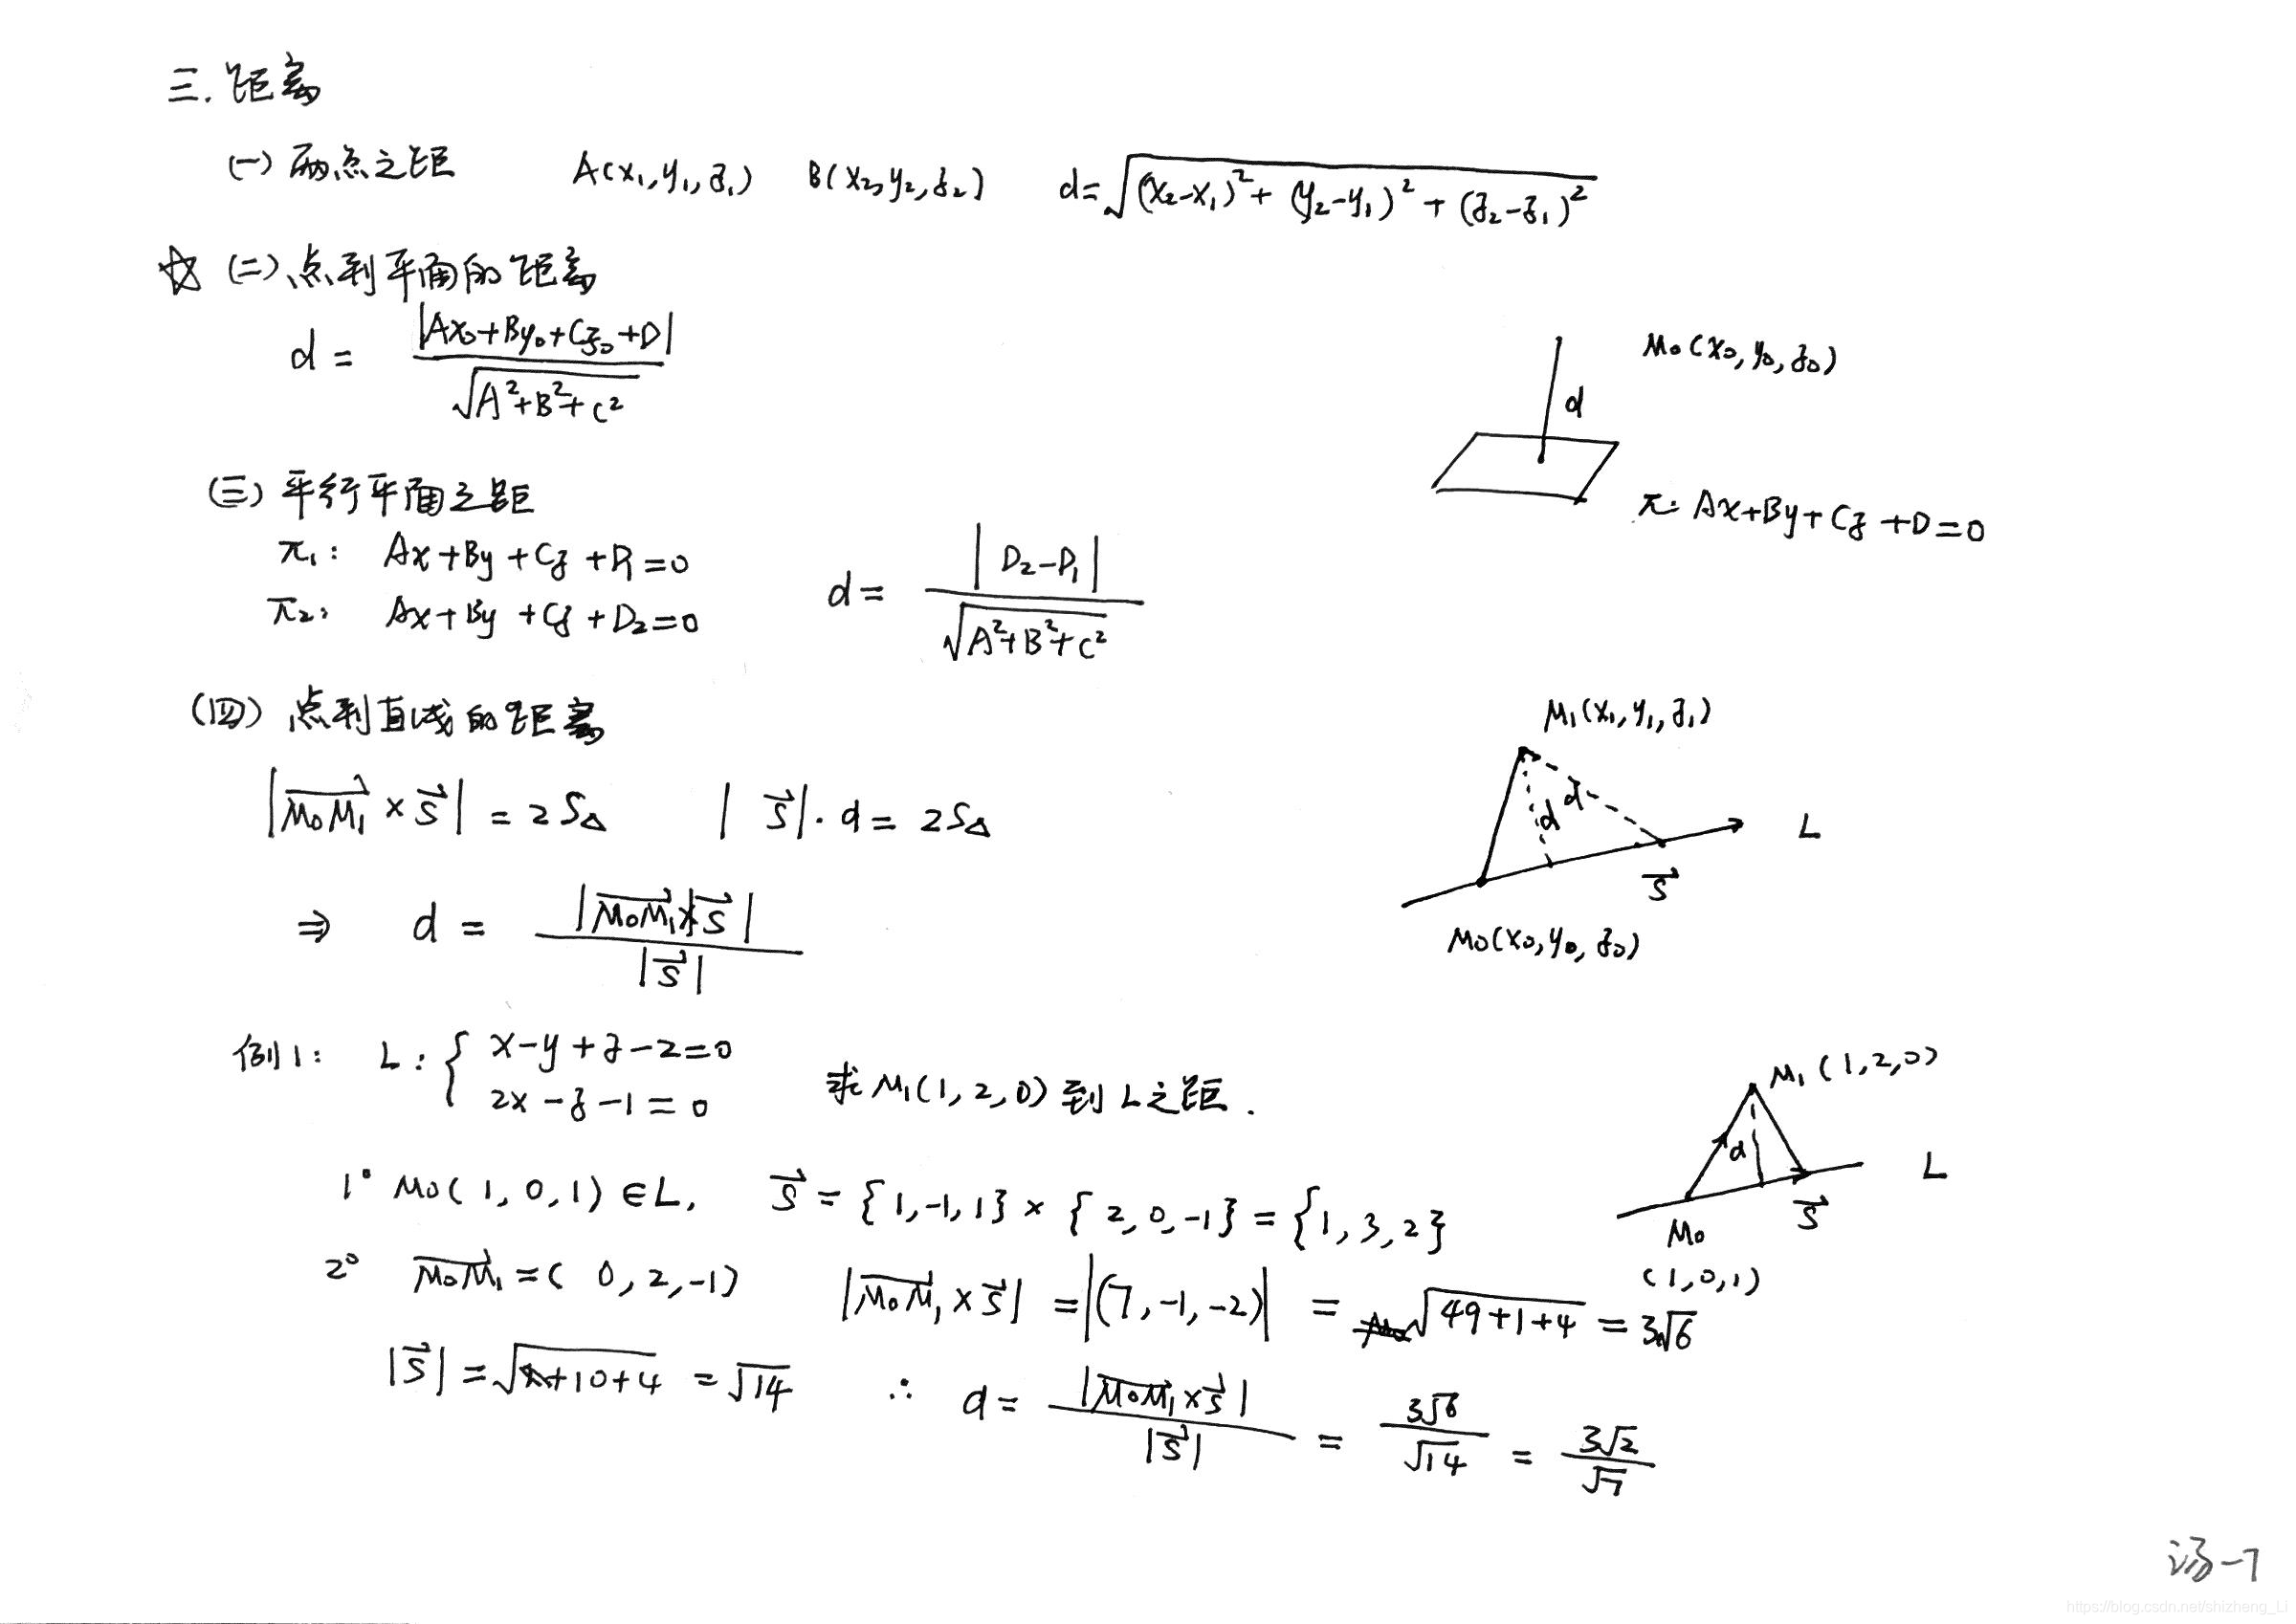 三. 距离
(一) 两点之距 A(x₁,y₁,z₁) B(x₂,y₂,z₂) d=√((x₂-x₁)²+(y₂-y₁)²+(z₂-z₁)²)
☆ (二) 点到平面的距离
d = |Ax₀+By₀+Cz₀+D| / √(A²+B²+C²)
M₀(x₀,y₀,z₀)
d
π: Ax+By+Cz+D=0
(三) 平行平面之距
π₁: Ax+By+Cz+D₁=0
π₂: Ax+By+Cz+D₂=0
d = |D₂-D₁| / √(A²+B²+C²)
(四) 点到直线的距离
|M₀M₁⃗ × s⃗| = 2S△ |s⃗|·d = 2S△
⇒ d = |M₀M₁⃗ × s⃗| / |s⃗|
M₁(x₁,y₁,z₁)
d d
L
s⃗
M₀(x₀,y₀,z₀)
例1: L: { x-y+z-2=0
2x-z-1=0
求M₁(1,2,0)到L之距.
M₁(1,2,0)
d
L
s⃗
M₀
(1,0,1)
1° M₀(1,0,1)∈L, s⃗={1,-1,1}×{2,0,-1}={1,3,2}
2° M₀M₁⃗=(0,2,-1) |M₀M₁⃗×s⃗| =|(7,-1,-2)| = √(49+1+4) = 3√6
|s⃗| = √(10+4) = √14 ∴ d = |M₀M₁⃗×s⃗| / |s⃗| = 3√6/√14 = 3√2/√7
汤-7
https://blog.csdn.net/shizheng_Li